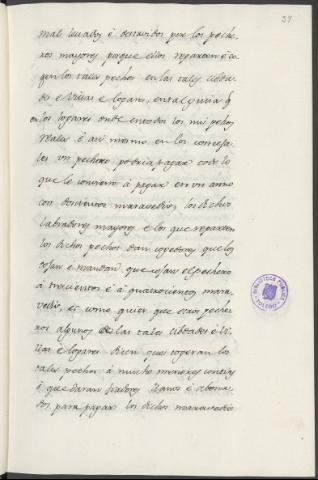 37
mal llevados é destruidos por los peche-
ros mayores porque ellos reparten é co-
gen los tales pechos en las tales cibda-
des é villas e logares, en tal guisa q̃
en los logares onde en todos los mis pechos
reales é asi mismo en los concejales
un pechero podria pagar todo lo
que le conviene á pagar en un anno
con doscientos maravedis, los dichos
labradores mayores e los que reparten
los dichos pechos dan cogedores que los
cojan é mandan que cojan el pechero
á trecientos é á quatrocientos mara-
vedis, et como quier que otros peche-
ros algunos de las tales cibdades é vi-
llas e logares dicen que cogeran los
tales pechos á mucho menores contias
é que daran fiadores llanos é abona-
dos para pagar los dichos maravedis
BIBLIOTECA PUBLICA
TOLEDO